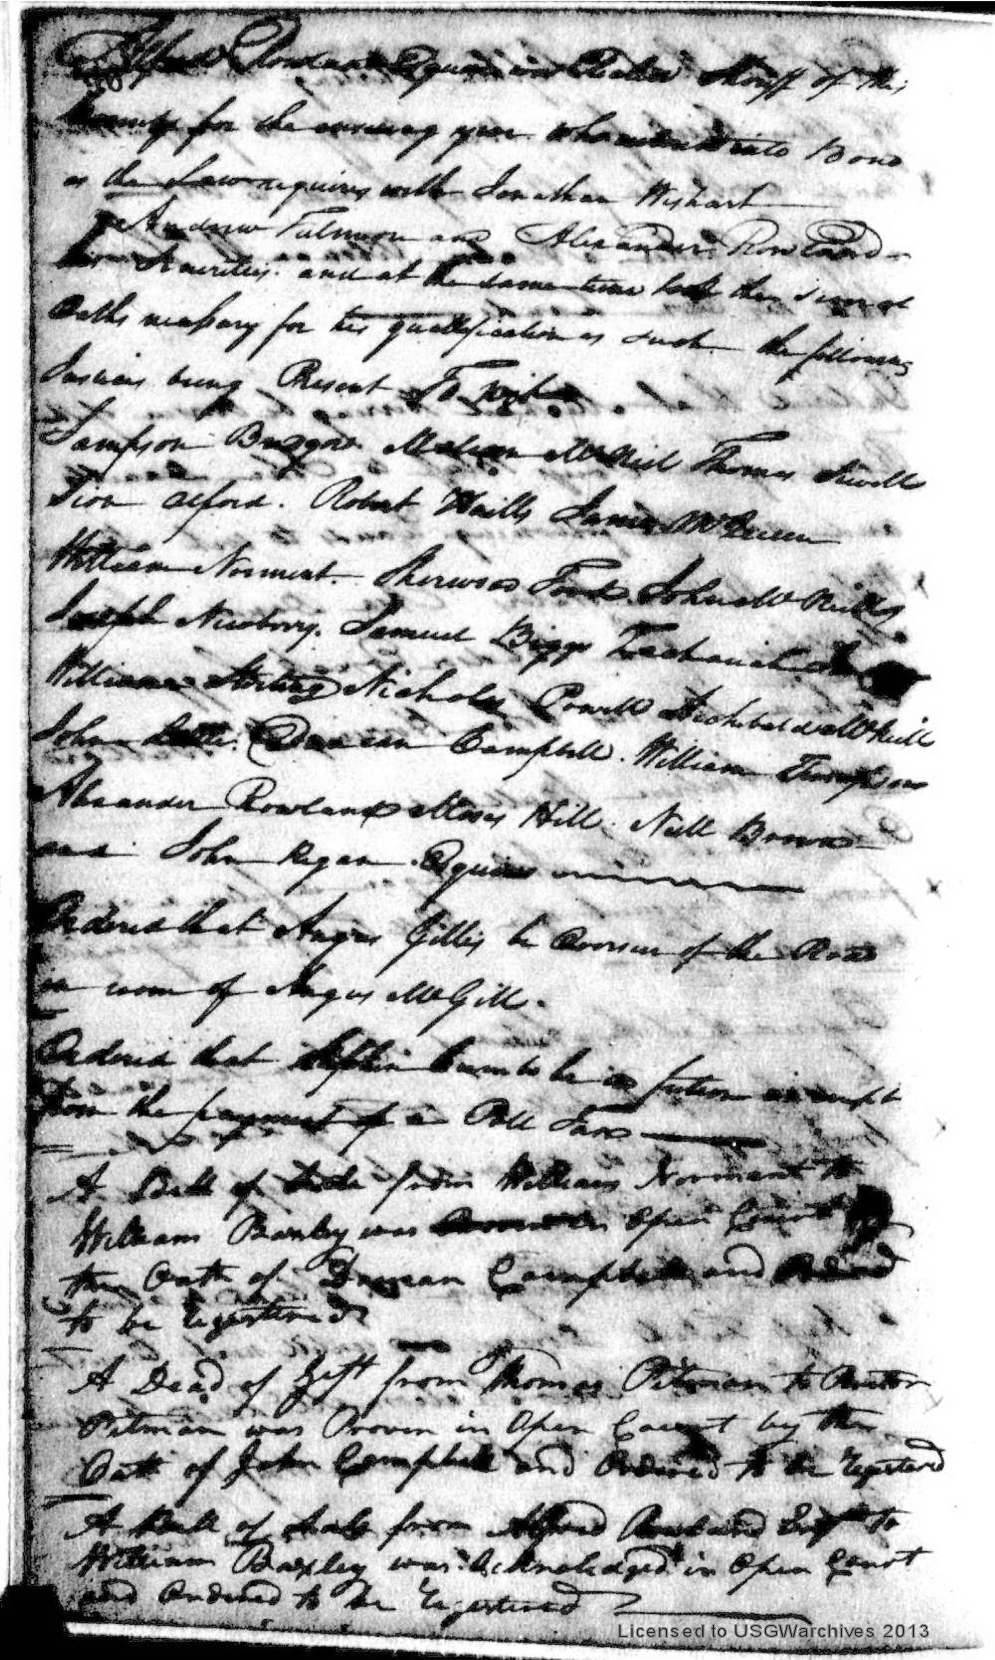 Alfred Rowland Esquire was Elected Sheriff of this
County for the ensuing year who entered into Bond
as the Law requires with Jonathan Wishart
Andrew Fulmore and Alexander Rowland
his Securities and at the same time took the several
Oaths nessary for his quallification as such the following
Justices being Present To Wit
Sampson Bridgers Malcom McNeil Thomas Sewell
Sion Alford. Robert Haills James McQueen
William Norment. Sherwood Ford. John McNeill
Joseph Newberry. Samuel Biggs Zechariah
William Sterling Nicholas Powell Archibald McNeill
John Duncan Campbell. William Thompson
Alexander Rowland Moses Hill. Neill Brown
and John Regan. Esquires
Ordered that Angus Gillis be Overseer of the Road
in room of Angus McGill.
Ordered that be in future exempt
from the payment of a Poll Tax
A Bill of from William Norment to
William Baxley was Proven in Open Court
the Oath of Duncan Campbell and Ordered
to be Registered
A Dead of Gift from Thomas Pitman to
Pitman was Proven in Open Court by the
Oath of John Campbell and Ordered to be Registered
A Bill of Sale from Alfred Rowland Esqr to
William Baxley was Acknoledged in Open Court
and Ordered to be Registered
Licensed to USGWarchives 2013